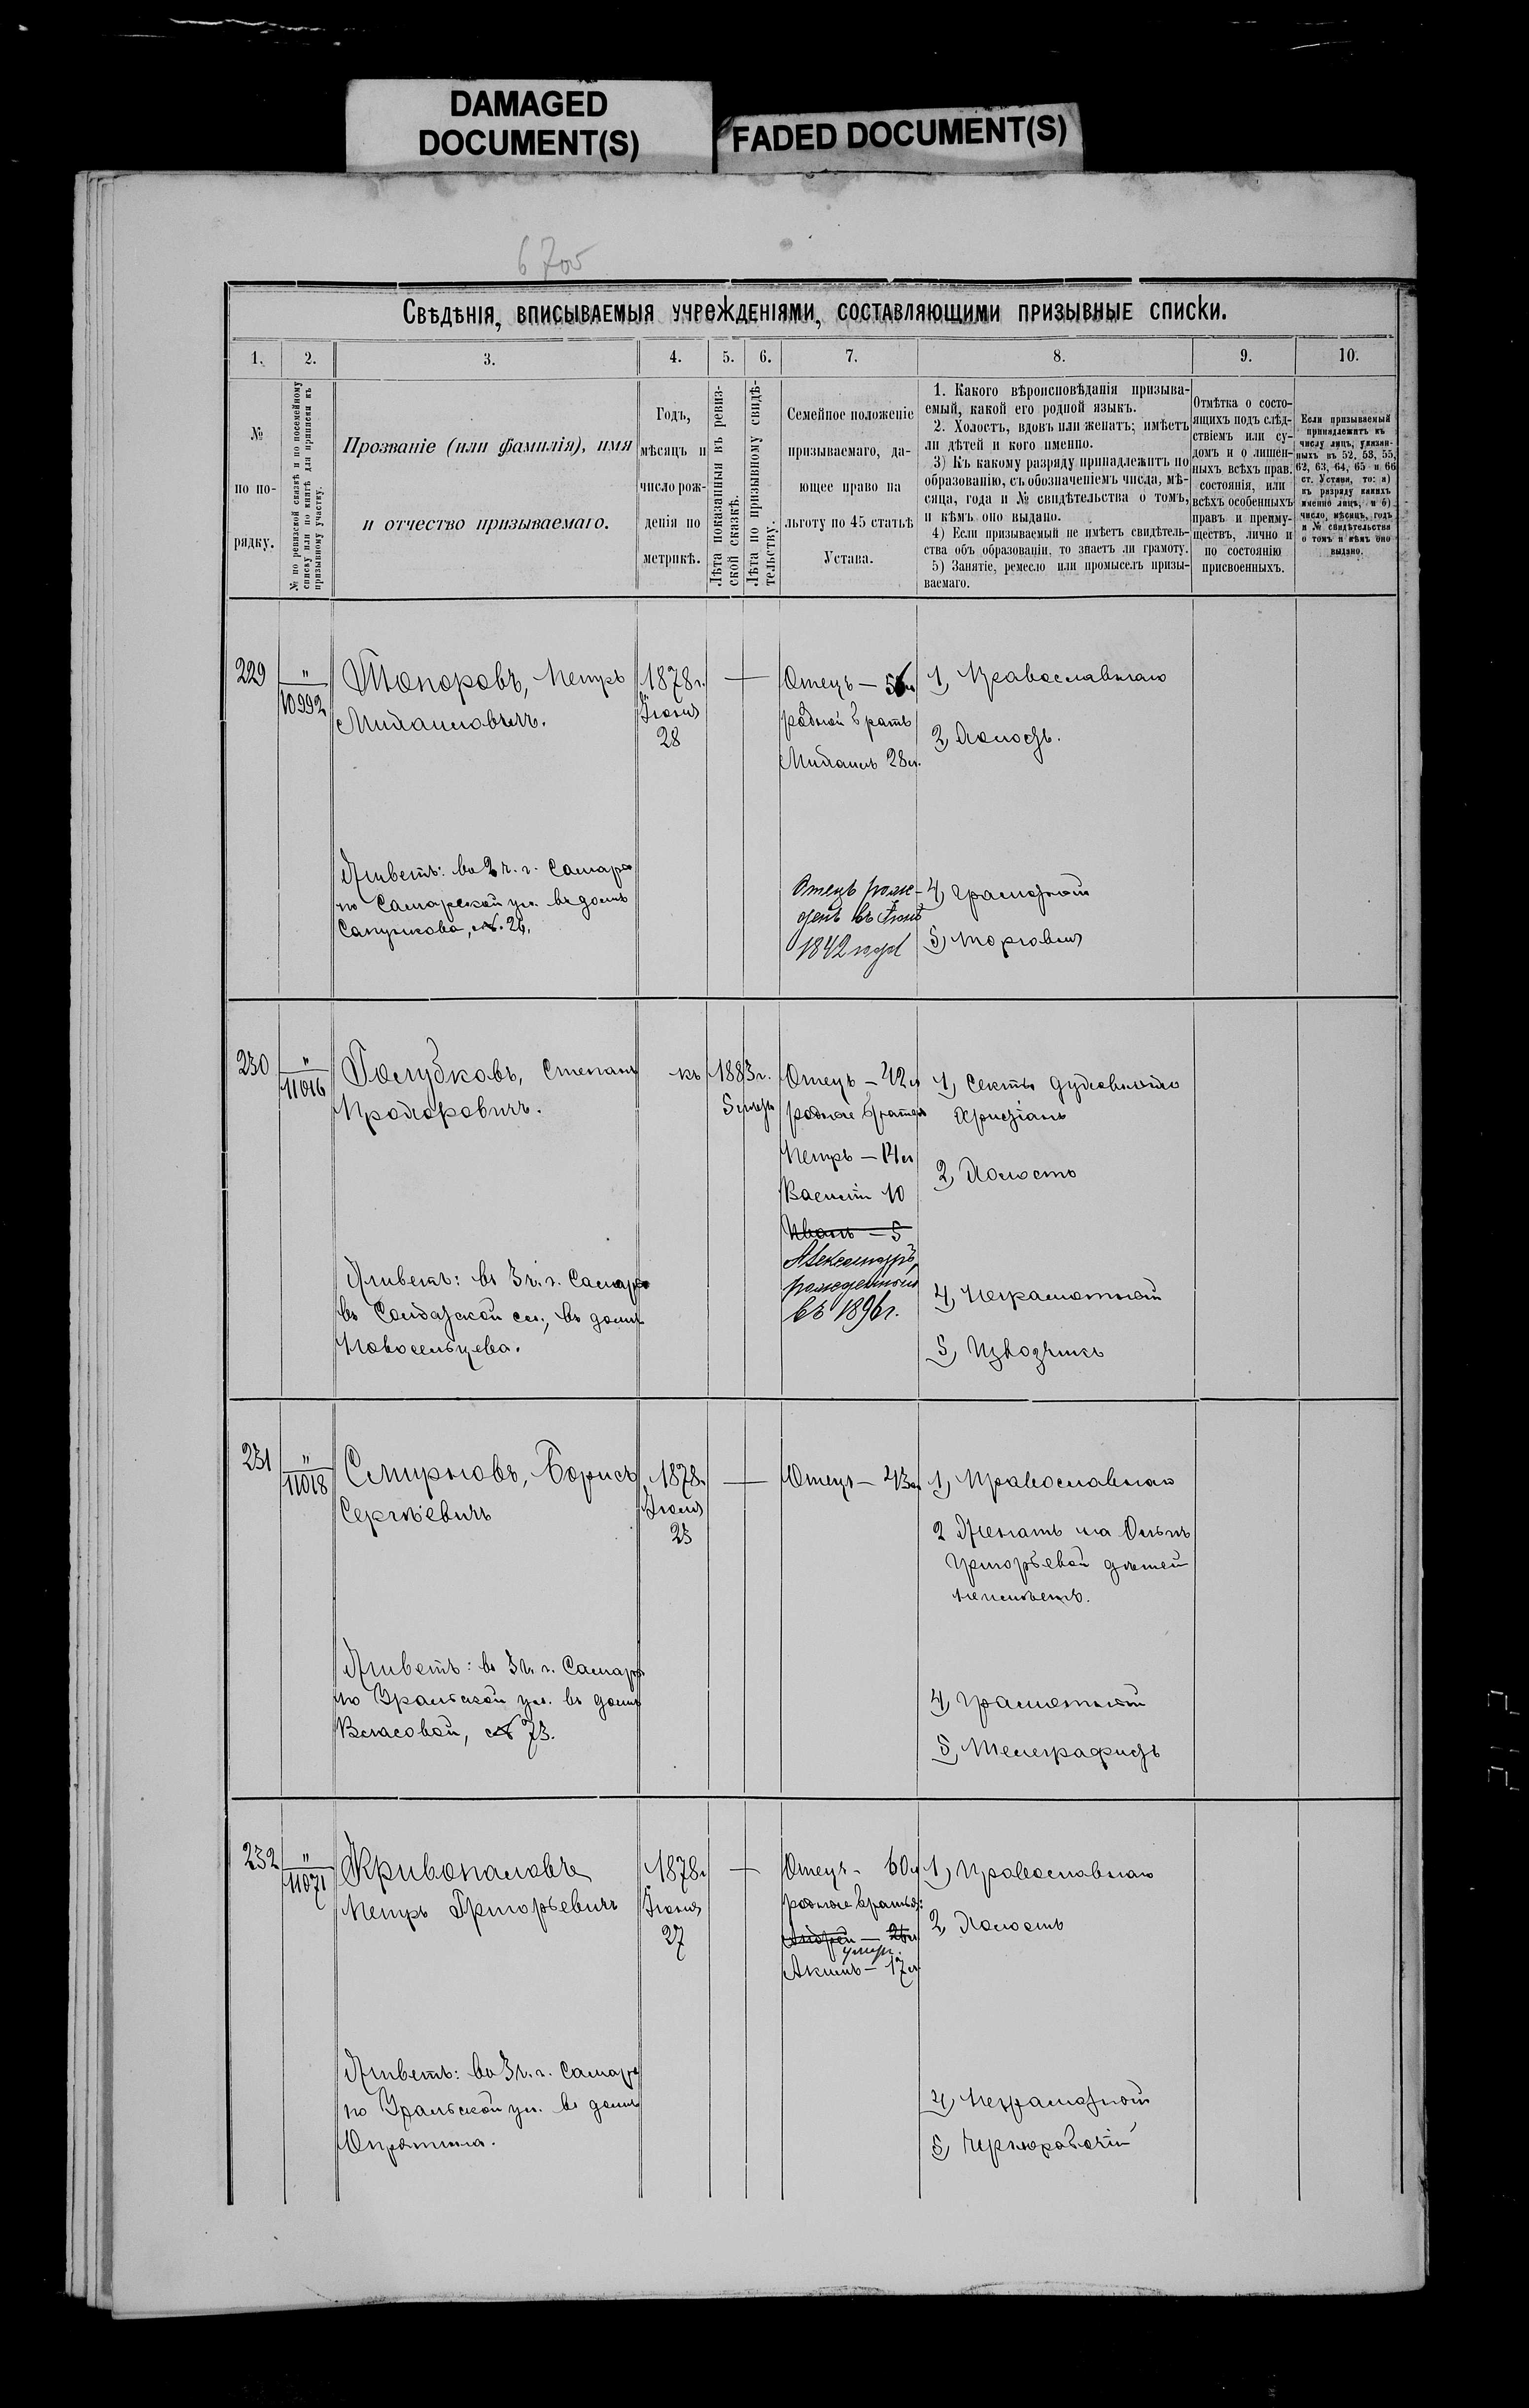 DAMAGED
DOCUMENT(S)
FADED DOCUMENT(S)
Свѣдѣнія, вписываемыя учрежденіями, составляющими призывные списки.
1.
2.
3.
4.
5.
6.
7.
8.
9.
10.
№
по по-
рядку.
№ по ревизской сказкѣ и по посемейному
списку или по книгѣ для приписки къ
призывному участку.
Прозваніе (или фамилія), имя
и отчество призываемаго.
Годъ,
мѣсяцъ и
число рож-
денія по
метрикѣ.
Лѣта показанныя въ ревиз-
ской сказкѣ.
Лѣта по призывному свидѣ-
тельству.
Семейное положеніе
призываемаго, да-
ющее право на
льготу по 45 статьѣ
Устава.
1. Какого вѣроисповѣданія призыва-
емый, какой его родной языкъ.
2. Холостъ, вдовъ или женатъ; имѣетъ
ли дѣтей и кого именно.
3) Къ какому разряду принадлежитъ по
образованію, съ обозначеніемъ числа, мѣ-
сяца, года и № свидѣтельства о томъ,
и кѣмъ оно выдано.
4) Если призываемый не имѣетъ свидѣтель-
ства объ образованіи, то знаетъ ли грамоту.
5) Занятіе, ремесло или промыселъ призы-
ваемаго.
Отмѣтка о состо-
ящихъ подъ слѣд-
ствіемъ или су-
домъ и о лишен-
ныхъ всѣхъ прав.
состоянія, или
всѣхъ особенныхъ
правъ и преиму-
ществъ, лично и
по состоянію
присвоенныхъ.
Если призываемый
принадлежитъ къ
числу лицъ, указан-
ныхъ въ 52, 53, 55,
62, 63, 64, 65 и 66
ст. Устава, то: а)
къ разряду какихъ
именно лицъ, и б)
число, мѣсяцъ, годъ
и № свидѣтельства
о томъ и кѣмъ оно
выдано.
229
"
10992
Топоровъ, Петръ
Михаиловичъ.
1878 г.
Іюня
28
Отецъ —
родной братъ
Михаилъ 28 л.
1, Православнаго
2, Холостъ.
Живетъ: во 2 ч. г. Самары
по Самарской ул. въ домѣ
Сапункова, № 26.
Отецъ рож-
денъ въ Іюнѣ
1842 года
4, Грамотной
5, Торговля
230
"
11016
Голубковъ, Степанъ
Прохоровичъ.
къ 1883 г.
5 лѣтъ
Отецъ — 42 л
родные братья
Петръ — 14 л
Василій 10
Иванъ — 5
Александръ,
рожденный
въ 1896 г.
1, Секты духовныхъ
Христіанъ
2, Холостъ
Живетъ: въ 3 ч. г. Самары
въ Солдатской сл., въ домѣ
Новосельцева.
4, Неграмотной
5, Извозчикъ
231
"
11018
Смирновъ, Борисъ
Сергѣевичъ
1878 г.
Іюля
25
Отецъ — 43 л
1, Православнаго
2 Женатъ на Ольгѣ
Григорьевой дѣтей
неимѣетъ.
Живетъ: въ 3 ч. г. Самары
по Уральской ул. въ домѣ
Власовой, № 73.
4, Грамотной
5, Телеграфистъ
232
"
11071
Кривопаловъ
Петръ Григорьевичъ
1878 г.
Іюня
27
Отецъ - 60 л
родные братья:
Андрей — 26 л
умеръ.
Акимъ — 17 л
1, Православнаго
2, Холостъ
Живетъ: во 3 ч. г. Самары
по Уральской ул. въ домѣ
4, Неграмотной
5, Чернорабочій